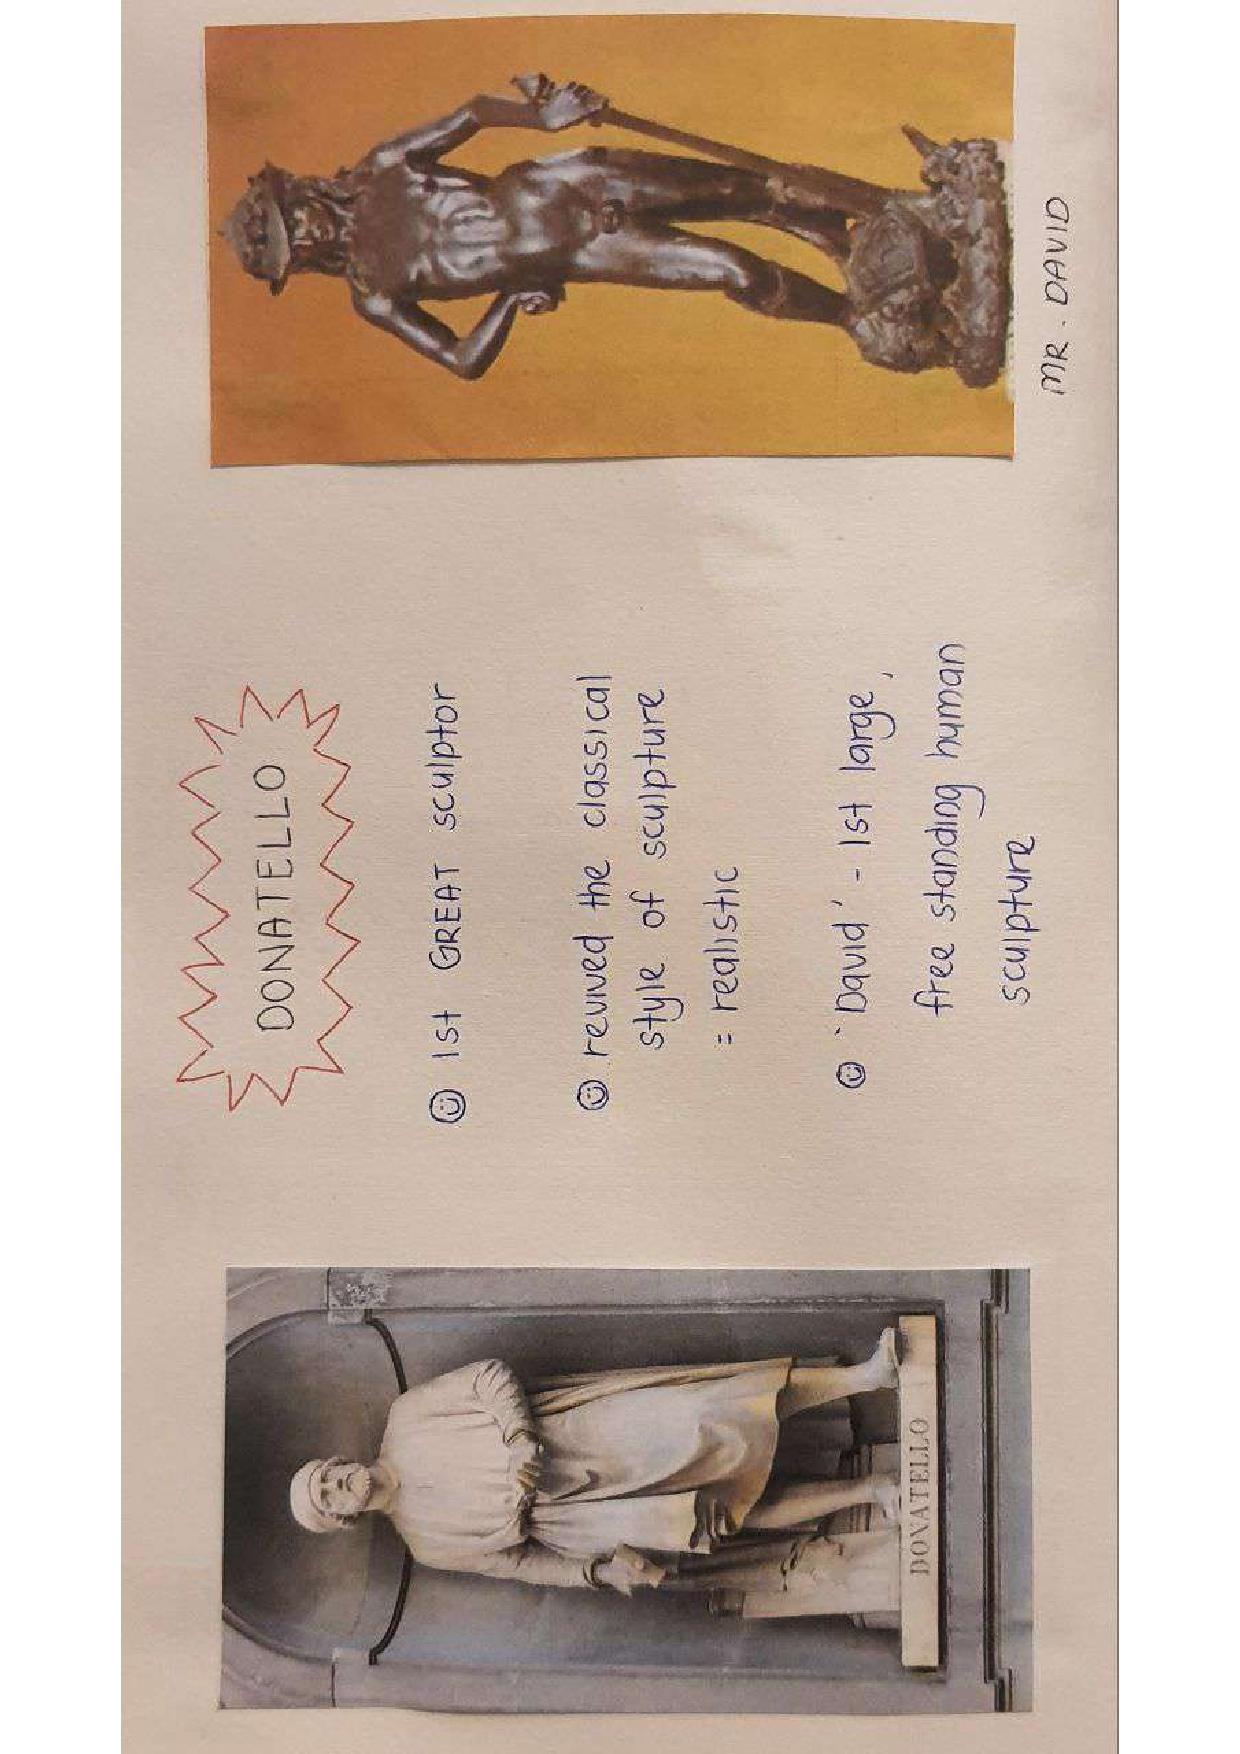 DONATELLO
1st GREAT sculptor
revived the classical
style of sculpture
= realistic
'David' - 1st large,
free standing human
sculpture
DONATELLO
MR. DAVID